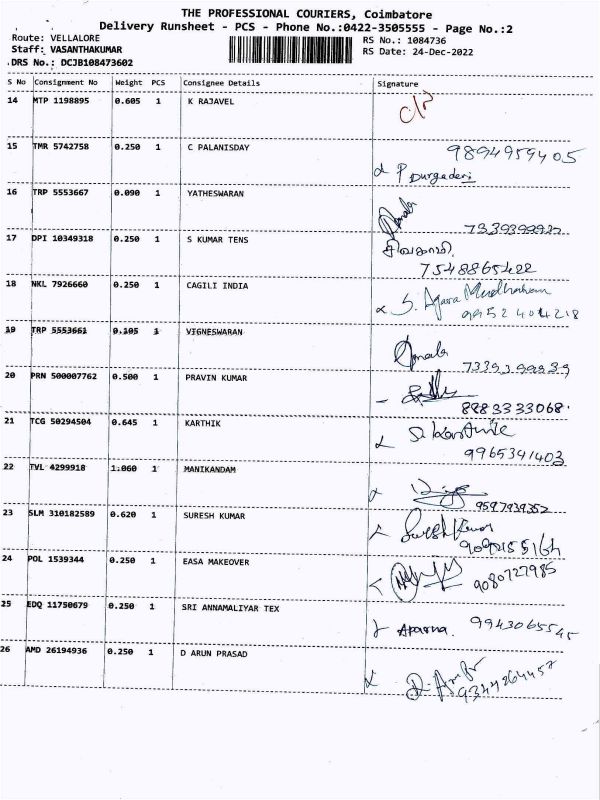 THE PROFESSIONAL COURIERS, Coimbatore
Delivery Runsheet - PCS - Phone No.:0422-3505555 - Page No.:2
Route: VELLALORE RS No.: 1084736
Staff: VASANTHAKUMAR RS Date: 24-Dec-2022
DRS No.: DCJB108473602
S No Consignment No Weight PCS Consignee Details Signature
14 MTP 1198895 0.605 1 K RAJAVEL
15 TMR 5742758 0.250 1 C PALANISDAY 9894959405
P Durgadevi
16 TRP 5553667 0.090 1 YATHESWARAN
17 DPI 10349318 0.250 1 S KUMAR TENS சிவகாமி
7548865422
18 NKL 7926660 0.250 1 CAGILI INDIA S.
9952404218
19 TRP 5553661 0.195 1 VIGNESWARAN
7339399939
20 PRN 500007762 0.500 1 PRAVIN KUMAR
8883333068
21 TCG 50294504 0.645 1 KARTHIK
9965341403
22 TVL 4299918 1.060 1 MANIKANDAM
9597939352
23 SLM 310182589 0.620 1 SURESH KUMAR Suresh Kumar
24 POL 1539344 0.250 1 EASA MAKEOVER
9080727985
25 EDQ 11750679 0.250 1 SRI ANNAMALIYAR TEX Aparna. 9943065545
26 AMD 26194936 0.250 1 D ARUN PRASAD
9344264457